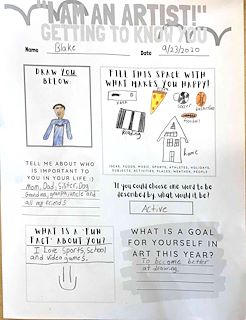 "I AM AN ARTIST!"
GETTING TO KNOW YOU
Name Blake Date 9/23/2020
DRAW YOU BELOW
FILL THIS SPACE WITH
WHAT MAKES YOU HAPPY!
soccer
football
home
IDEAS: FOODS, MUSIC, SPORTS, ATHLETES, HOLIDAYS,
SUBJECTS, ACTIVITIES, PLACES, WEATHER, PEOPLE
TELL ME ABOUT WHO
IS IMPORTANT TO
YOU IN YOUR LIFE :)
Mom, Dad, Sister, Dog
all my friends
If you could choose one word to be
described by, what would it be?
Active
WHAT IS A "FUN
FACT" ABOUT YOU?
I Love Sports, School
and video games.
WHAT IS A GOAL
FOR YOURSELF IN
ART THIS YEAR?
To become better
at drawing.